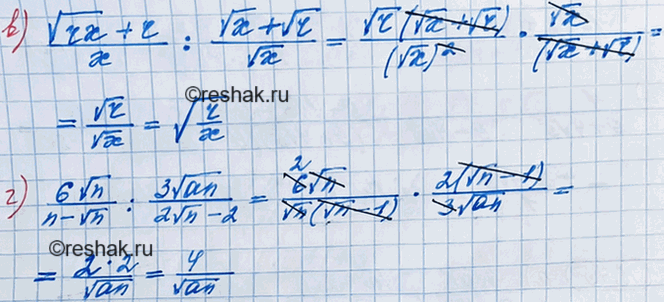 в) (√(zx) + z)/x : (√x + √z)/√x = √z(√x + √z)/(√x)² · √x/(√x + √z) =
= √z/√x = √(z/x)
©reshak.ru
г) 6√n/(n-√n) : 3√(an)/(2√n - 2) = 2 6√n/(√n(√n - 1)) · 2(√n - 1)/(3√(an)) =
©reshak.ru
= 2·2/√(an) = 4/√(an)